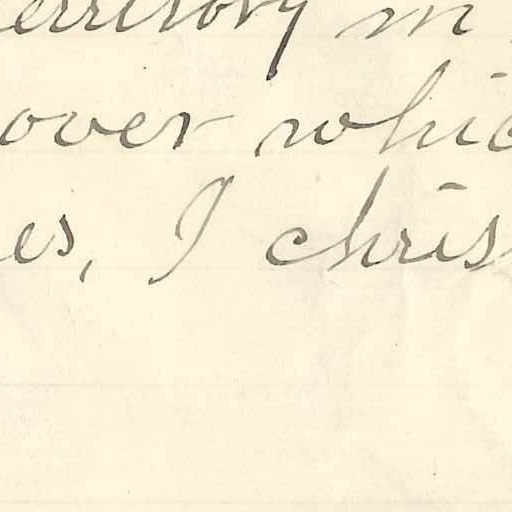 erritory in
over whic
es, I chris